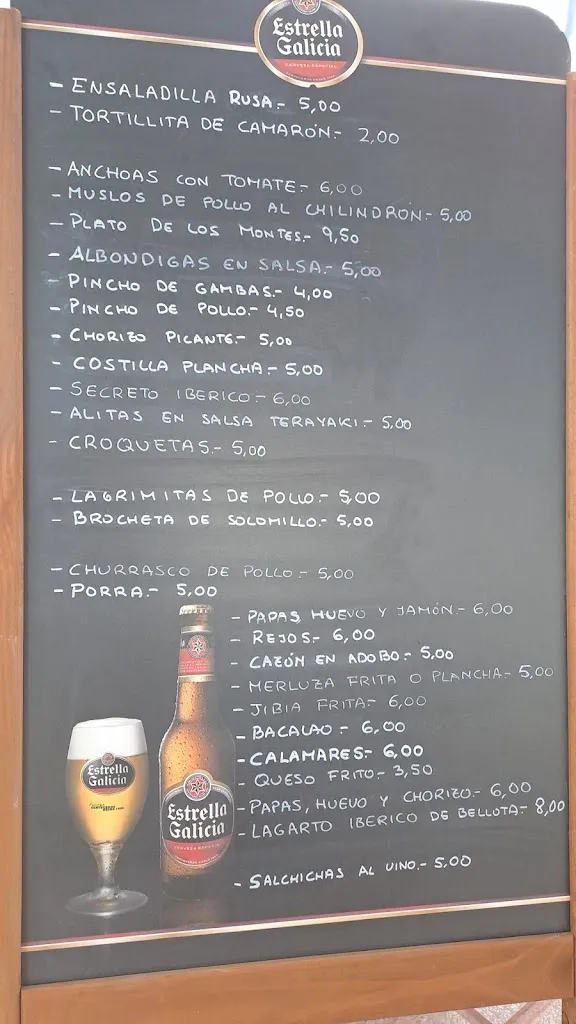 Estrella
Galicia
CERVEZA ESPECIAL
- ENSALADILLA RUSA.- 5,00
- TORTILLITA DE CAMARÓN.- 2,00
- ANCHOAS CON TOMATE.- 6,00
- MUSLOS DE POLLO AL CHILINDRÓN.- 5,00
- PLATO DE LOS MONTES.- 9,50
- ALBONDIGAS EN SALSA.- 5,00
- PINCHO DE GAMBAS.- 4,00
- PINCHO DE POLLO.- 4,50
- CHORIZO PICANTE.- 5,00
- COSTILLA PLANCHA.- 5,00
- SECRETO IBERICO.- 6,00
- ALITAS EN SALSA TERAYAKI.- 5,00
- CROQUETAS.- 5,00
- LAGRIMITAS DE POLLO.- 5,00
- BROCHETA DE SOLOMILLO.- 5,00
- CHURRASCO DE POLLO.- 5,00
- PORRA.- 5,00
- PAPAS, HUEVO Y JAMÓN.- 6,00
- REJOS.- 6,00
- CAZÓN EN ADOBO.- 5,00
- MERLUZA FRITA O PLANCHA.- 5,00
- JIBIA FRITA.- 6,00
- BACALAO.- 6,00
- CALAMARES.- 6,00
- QUESO FRITO.- 3,50
- PAPAS, HUEVO Y CHORIZO.- 6,00
- LAGARTO IBERICO DE BELLOTA.- 8,00
- SALCHICHAS AL VINO.- 5,00
Estrella
Galicia
Estrella
Galicia